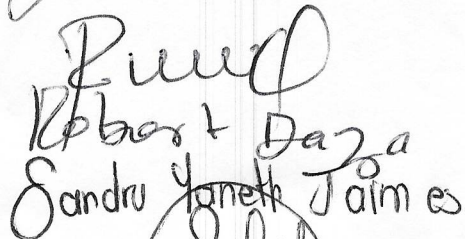 Robert Daza
Sandra Yaneth Jaimes